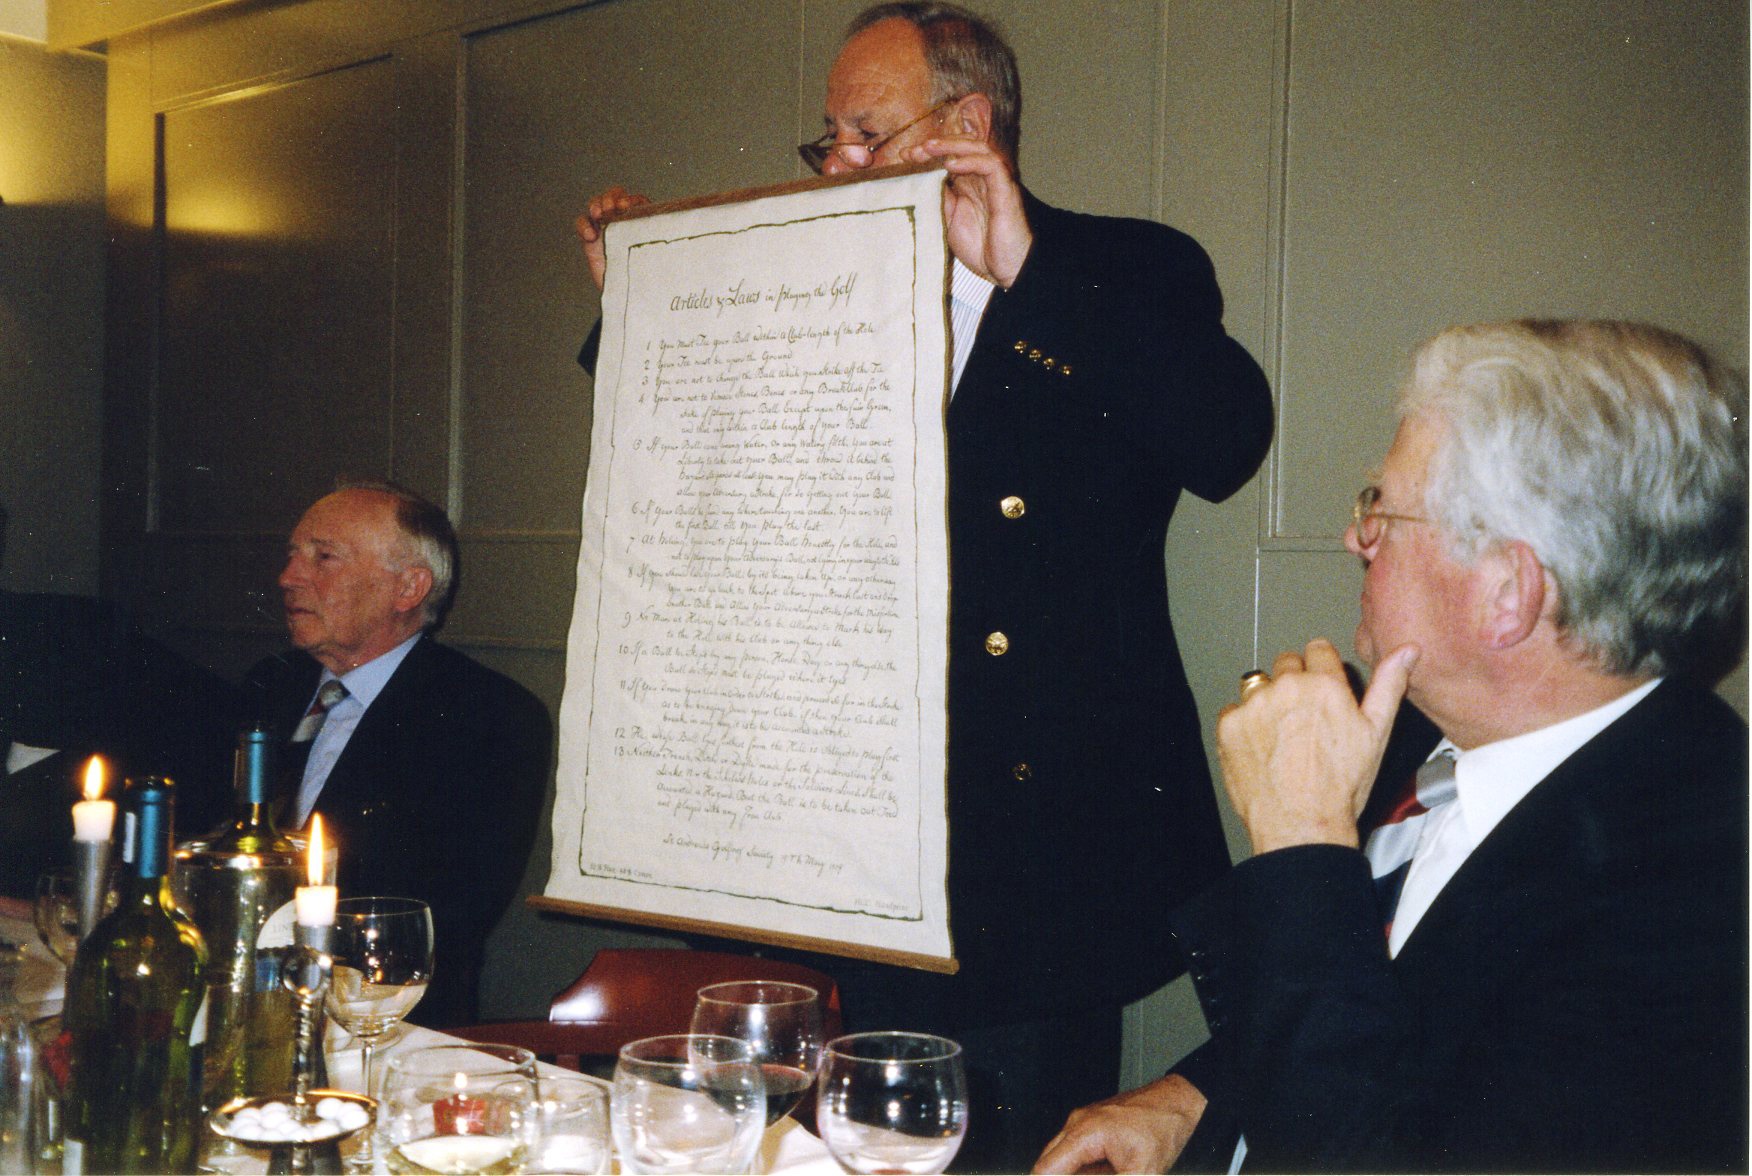 Articles & Laws in Playing the Golf
1 You Must Tee your Ball within a Club-length of the Hole
2 Your Tee must be upon the Ground
3 You are not to Change the Ball which you Strike off the Tee
4 You are not to Remove Stones, Bones or any Break Club for the
Sake of playing your Ball Except upon the fair Green,
and that only within a Club length of your Ball.
5 If your Ball come among Water, Or any Watery filth, You are at
Liberty to take out your Ball, and throw it behind the
Hazard 6 yards at least, you may play it with any Club and
allow your Adversary a Stroke for So Getting out your Ball
6 If Your Balls be found any where touching one another, You are to lift
the first Ball till You play the last.
7 At Holeing, you are to play Your Ball honestly for the Hole, and
not to play upon Your Adversary's Ball, not lying in your way to the Hole
8 If you Should lose Your Ball by its being taken Up, or any other way
You are to go back to the spot where you Struck last and drop
another Ball and Allow Your Adversary a Stroke for the Misfortune
9 No Man at Holeing his Ball is to be Allowed to Mark his way
to the Hole with his Club or any thing else
10 If a Ball be Stop'd by any person, Horse, Dog or any thing else the
Ball So Stop'd must be played where it lyes
11 If you Draw Your Club in Order to Strike, and proceed So far in the Stroke
as to be bringing down your Club if then your Club Shall
break in any way it is to be accounted a Stroke.
12 He, whose Ball lyes furthest from the Hole is Obliged to Play first
13 Neither Trench, Ditch or Dyke made for the preservation of the
Links, Nor the Scholars Holes or the Soldiers Lines Shall be
Accounted a Hazard, But the Ball is to be taken out Teed
and played with any Iron Club.
St Andrews Golfing Society May